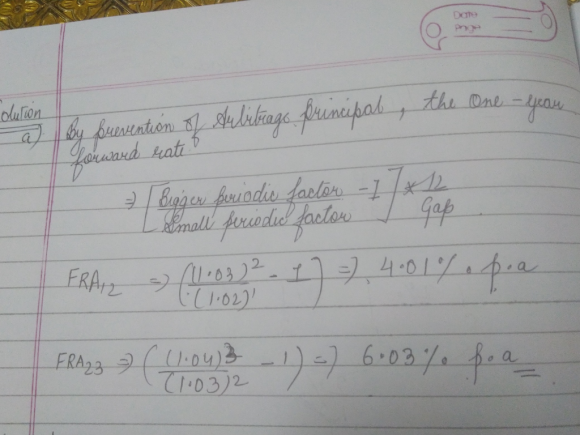 Date
Page
Solution
a) By prevention of Arbitrage principal, the one-year
forward rate
⇒ [Bigger periodic factor / Small periodic factor - 1] * 12 / Gap
FRA12 ⇒ ((1.03)^2 / (1.02)^1 - 1) ⇒ 4.01% p.a
FRA23 ⇒ ((1.04)^3 / (1.03)^2 - 1) ⇒ 6.03% p.a